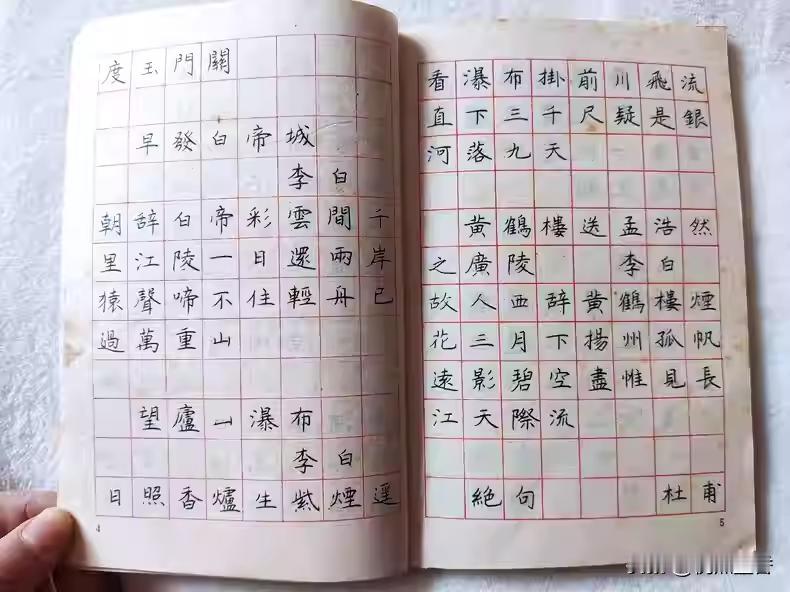 度玉門關
早發白帝城
李白
朝辞白帝彩雲間千
里江陵一日還兩岸
猿聲啼不住輕舟已
過萬重山
望廬山瀑布
李白
日照香爐生紫煙遥
4
看瀑布掛前川飛流
直下三千尺疑是銀
河落九天
黃鶴樓送孟浩然
之廣陵 李白
故人西辞黃鶴樓煙
花三月下揚州孤帆
遠影碧空盡惟見長
江天際流
絕句 杜甫
5